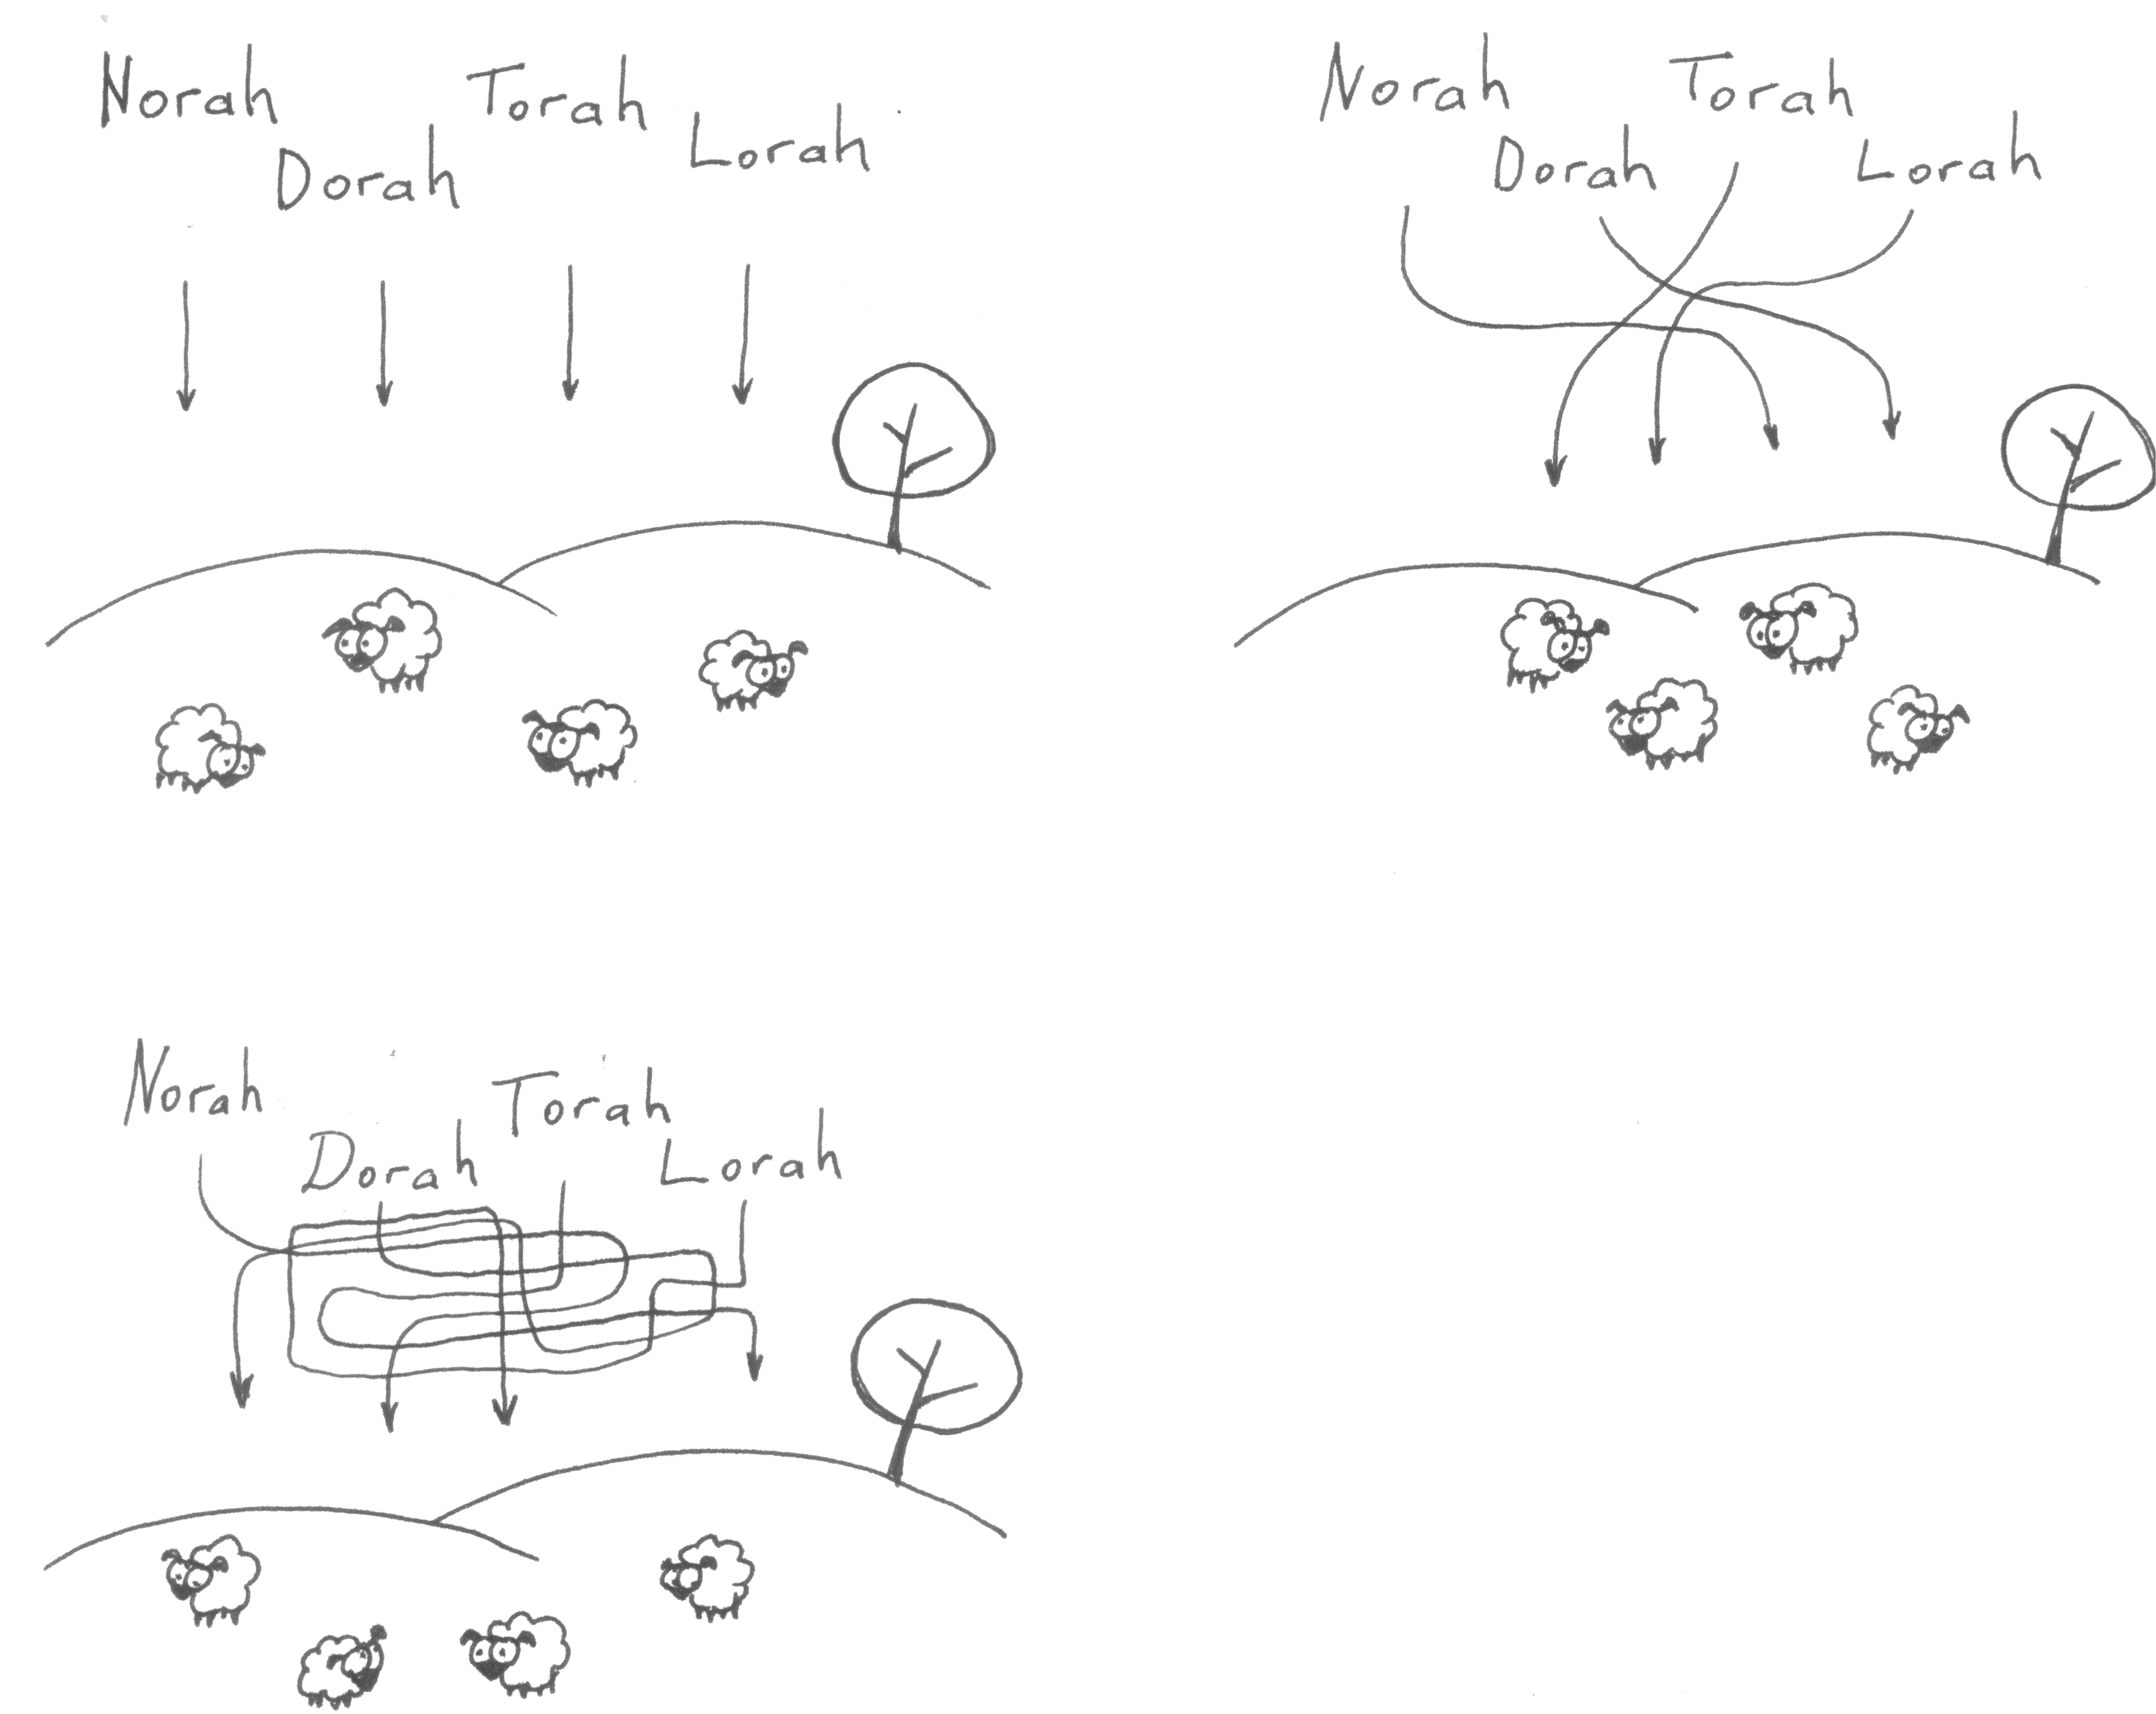 Norah
Dorah
Torah
Lorah
Norah
Dorah
Torah
Lorah
Norah
Dorah
Torah
Lorah